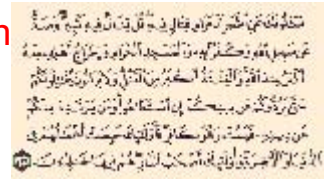 يَسْـَٔلُونَكَ عَنِ ٱلشَّهْرِ ٱلْحَرَامِ قِتَالٍ فِيهِ قُلْ قِتَالٌ فِيهِ كَبِيرٌ وَصَدٌّ
عَن سَبِيلِ ٱللَّهِ وَكُفْرٌۢ بِهِۦ وَٱلْمَسْجِدِ ٱلْحَرَامِ وَإِخْرَاجُ أَهْلِهِۦ مِنْهُ
أَكْبَرُ عِندَ ٱللَّهِ وَٱلْفِتْنَةُ أَكْبَرُ مِنَ ٱلْقَتْلِ وَلَا يَزَالُونَ يُقَٰتِلُونَكُمْ
حَتَّىٰ يَرُدُّوكُمْ عَن دِينِكُمْ إِنِ ٱسْتَطَٰعُوا۟ وَمَن يَرْتَدِدْ مِنكُمْ
عَن دِينِهِۦ فَيَمُتْ وَهُوَ كَافِرٌ فَأُو۟لَٰٓئِكَ حَبِطَتْ أَعْمَٰلُهُمْ فِى
ٱلدُّنْيَا وَٱلْءَاخِرَةِ وَأُو۟لَٰٓئِكَ أَصْحَٰبُ ٱلنَّارِ هُمْ فِيهَا خَٰلِدُونَ